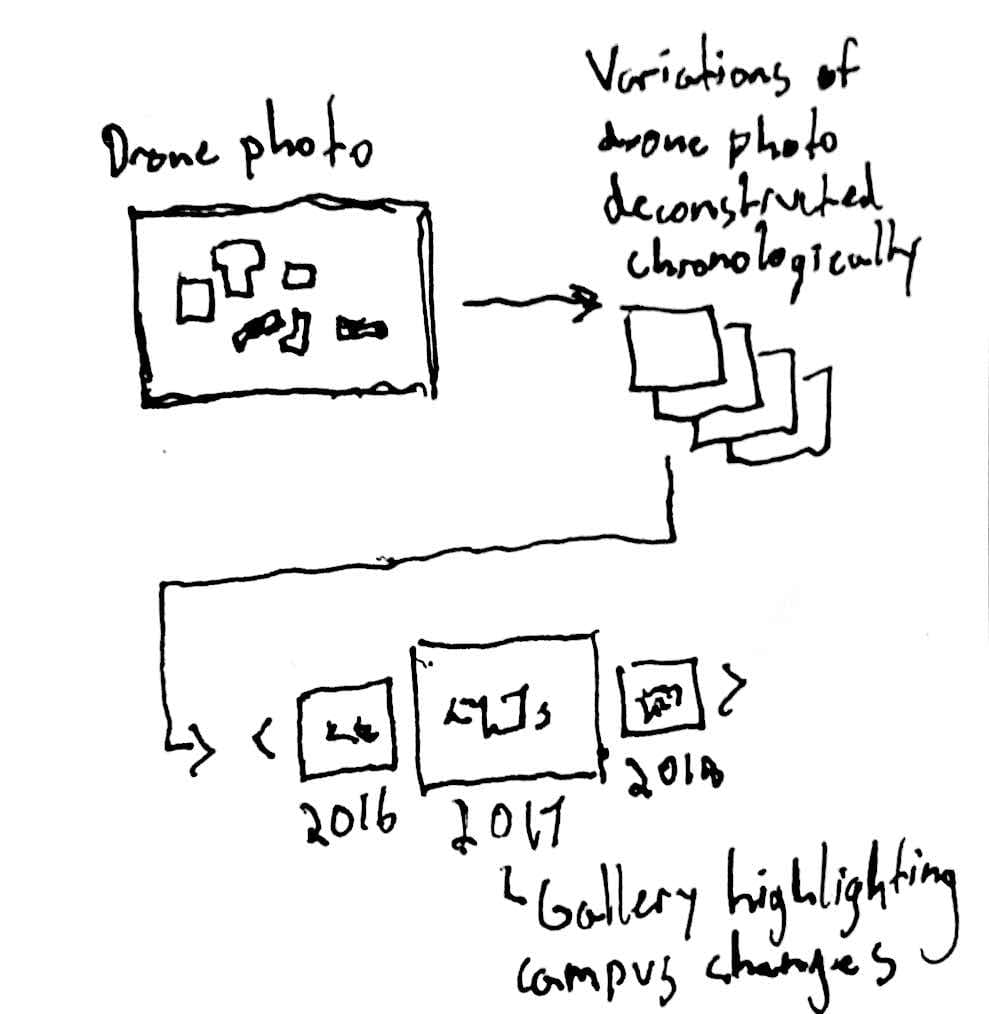 Drone photo
Variations of
drone photo
deconstructed
chronologically
2016
2017
2018
Gallery highlighting
campus changes